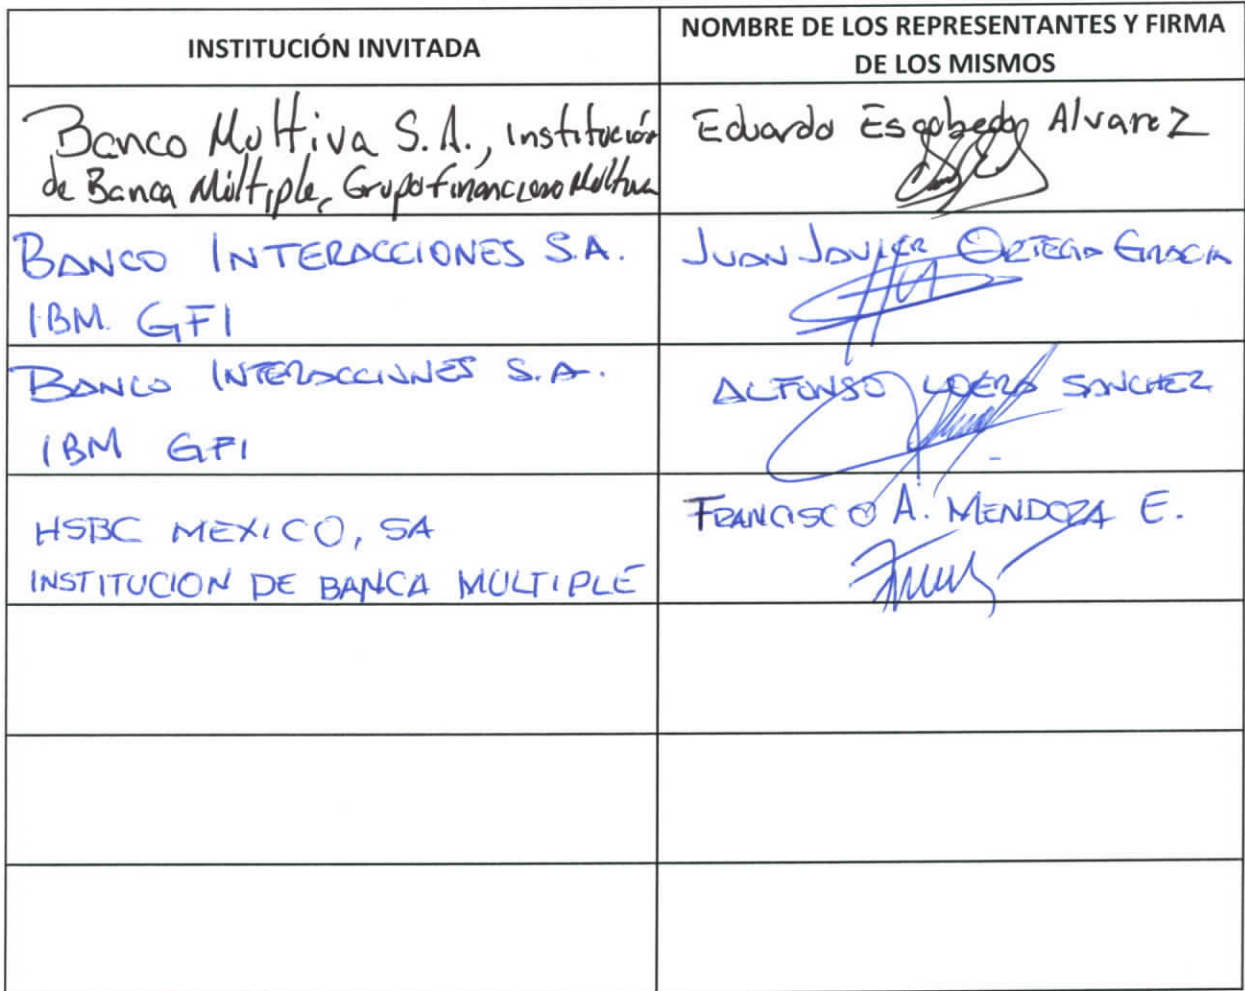 INSTITUCIÓN INVITADA
NOMBRE DE LOS REPRESENTANTES Y FIRMA
DE LOS MISMOS
Banco Multiva S.A., Institución
de Banca Múltiple, Grupo Financiero Multiva
Eduardo Escobedo Alvarez
BANCO INTERACCIONES S.A.
IBM. GFI
JUAN JAVIER ORTEGA GRACIA
BANCO INTERACCIONES S.A.
IBM GFI
ALFONSO LOERA SANCHEZ
HSBC MEXICO, SA
INSTITUCION DE BANCA MULTIPLE
FRANCISCO A. MENDOZA E.